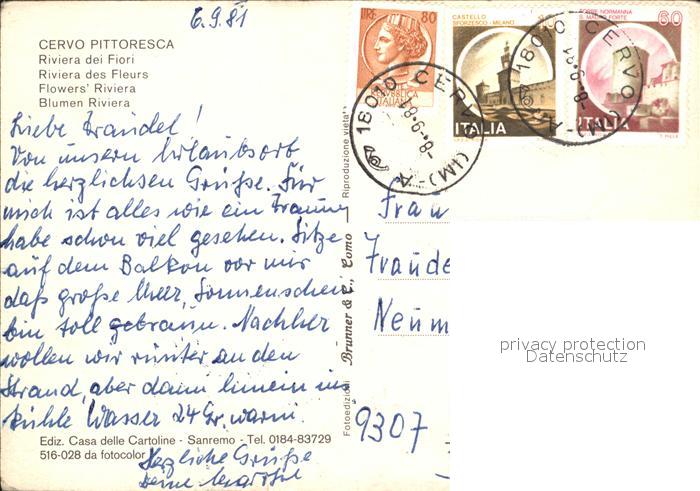 6.9.81
CERVO PITTORESCA
Riviera dei Fiori
Riviera des Fleurs
Flowers' Riviera
Blumen Riviera
Liebe Traudel!
Von unserm Urlaubsort
die herzlichsen Grüße. Für
mich ist alles wie ein Traum
habe schon viel gesehen. Sitze
auf dem Balkon vor mir
daß große Meer, Sonnenschein
bin toll gebraun. Nachher
wollen wir runter an den
Strand, aber dann hinein in
kühle Wasser 24 Gr. warm.
Herzliche Grüße
Deine
Ediz. Casa delle Cartoline - Sanremo - Tel. 0184-83729
516-028 da fotocolor
Fotoedizioni Brunner & C., Como — Riproduzione vietata
LIRE 80
REPUBBLICA
ITALIANA
CASTELLO
SFORZESCO - MILANO
ITALIA
TORRE NORMANNA
S. MAURO FORTE
60
ITALIA
18010 CERVO (IM) - A
8-9-81
18010 CERVO (IM) - A
8-9-81
Frau
Traude
Neum
9307
privacy protection
Datenschutz